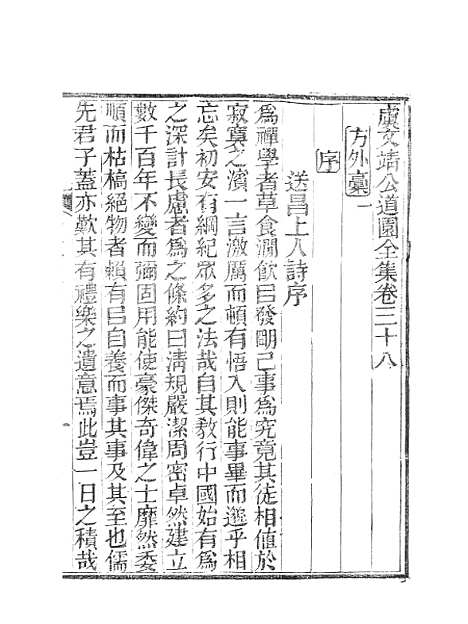 虞文靖公道園全集卷三十八
方外稾一
序
送昌上人詩序
爲禪學者草食澗飲㠯發明己事爲究竟其徒相值於
寂寞之濱一言激厲而頓有悟入則能事畢而邈乎相
忘矣初安有綱紀眾多之法哉自其敎行中國始有爲
之深計長慮者爲之條約曰淸規嚴潔周密卓然建立
數千百年不變而彌固用能使豪傑奇偉之士靡然委
順而枯槁絕物者賴有㠯自養而事其事及其至也儒
先君子蓋亦歎其有禮樂之遺意焉此豈一日之積哉